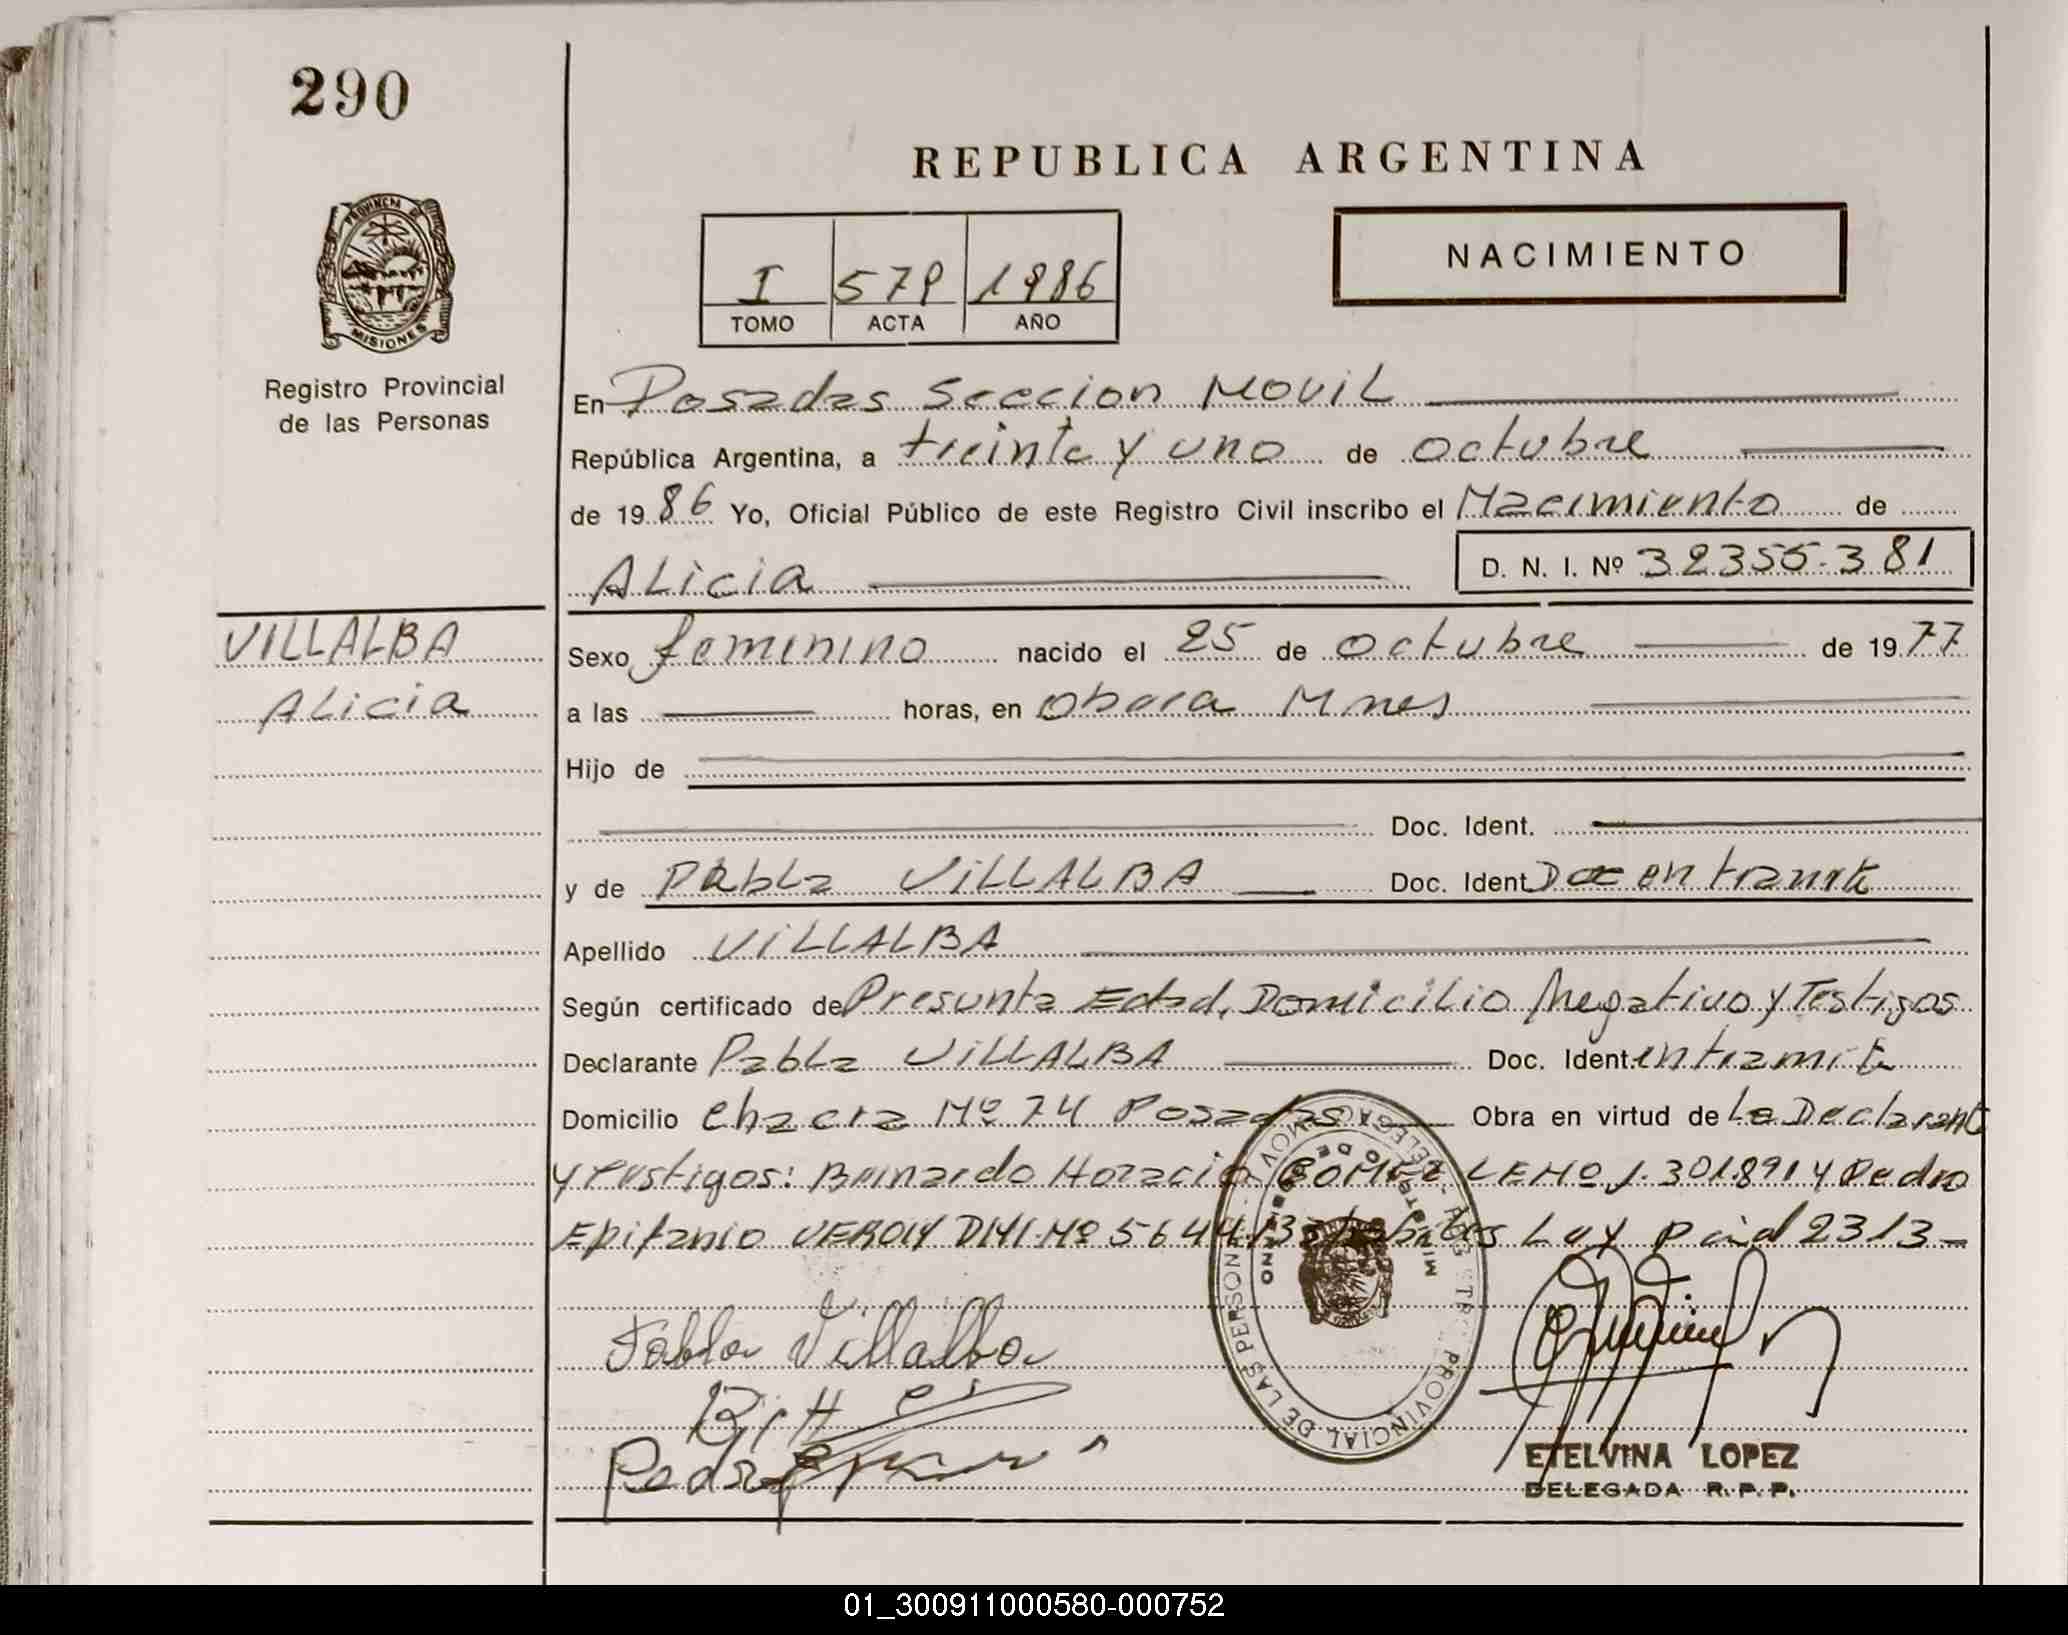 290
REPUBLICA ARGENTINA
PROVINCIA DE
MISIONES
Registro Provincial
de las Personas
NACIMIENTO
I 579 1986
TOMO ACTA AÑO
En Posadas Seccion Movil
República Argentina, a treinta y uno de octubre
de 1986 Yo, Oficial Público de este Registro Civil inscribo el Nacimiento de
ALicia D. N. I. Nº 32355.381
VILLALBA
ALicia
Sexo femenino nacido el 25 de octubre de 1977
a las horas, en Obera Mnes
Hijo de
Doc. Ident.
y de PabLa ViLLALBA Doc. Ident Doc en tramite
Apellido ViLLALBA
Según certificado de Presunta Edad, Domicilio Negativo y Testigos
Declarante PabLa ViLLALBA Doc. Ident. en tramite
Domicilio Chacra Nº 74 Posadas Obra en virtud de La Declarante
y testigos: Bernardo Horacio GOMEZ LE Nº 1.301.891 y Pedro
Epifanio VERON DNI Nº 5644 Ley Pcial 2313
Pabla Villalba
Pedro
ETELVINA LOPEZ
DELEGADA R. P. P.
01_300911000580-000752